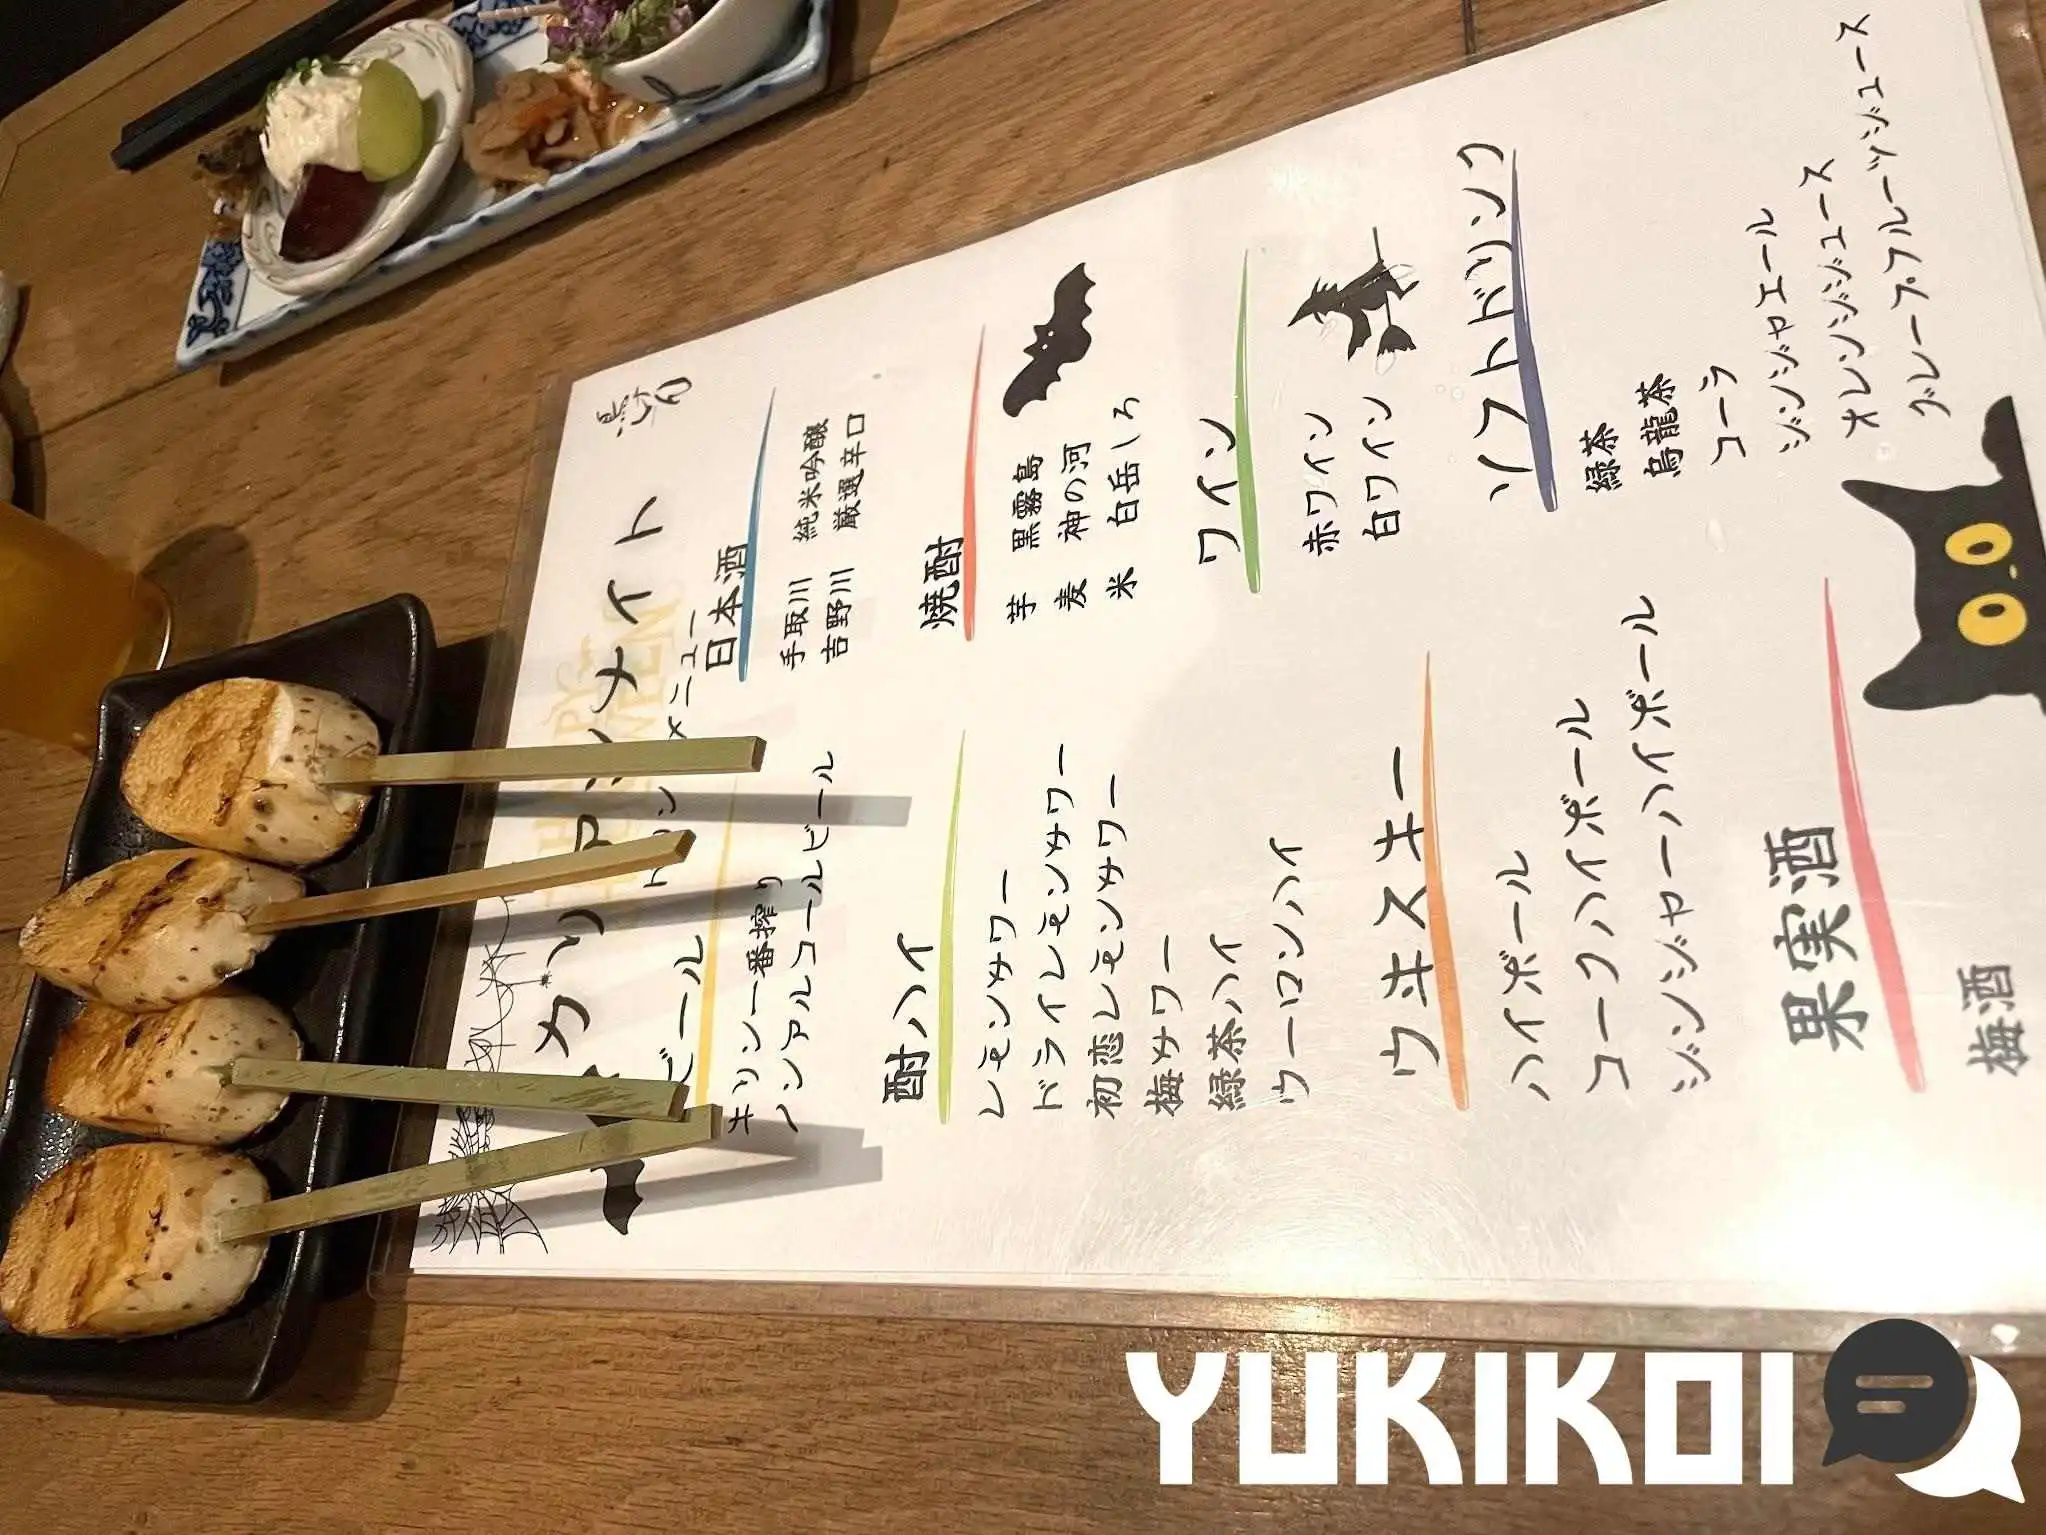 メイト
メニュー
ビール
キリン一番搾り
ノンアルコールビール
酎ハイ
レモンサワー
ドライレモンサワー
初恋レモンサワー
梅サワー
緑茶ハイ
ウーロンハイ
ウヰスキー
ハイボール
コークハイボール
ジンジャーハイボール
果実酒
梅酒
日本酒
手取川 純米吟醸
吉野川 厳選辛口
焼酎
芋 黒霧島
麦 神の河
米 白岳しろ
ワイン
赤ワイン
白ワイン
ソフトドリンク
緑茶
烏龍茶
コーラ
ジンジャエール
オレンジジュース
グレープフルーツジュース
YUKIKOI